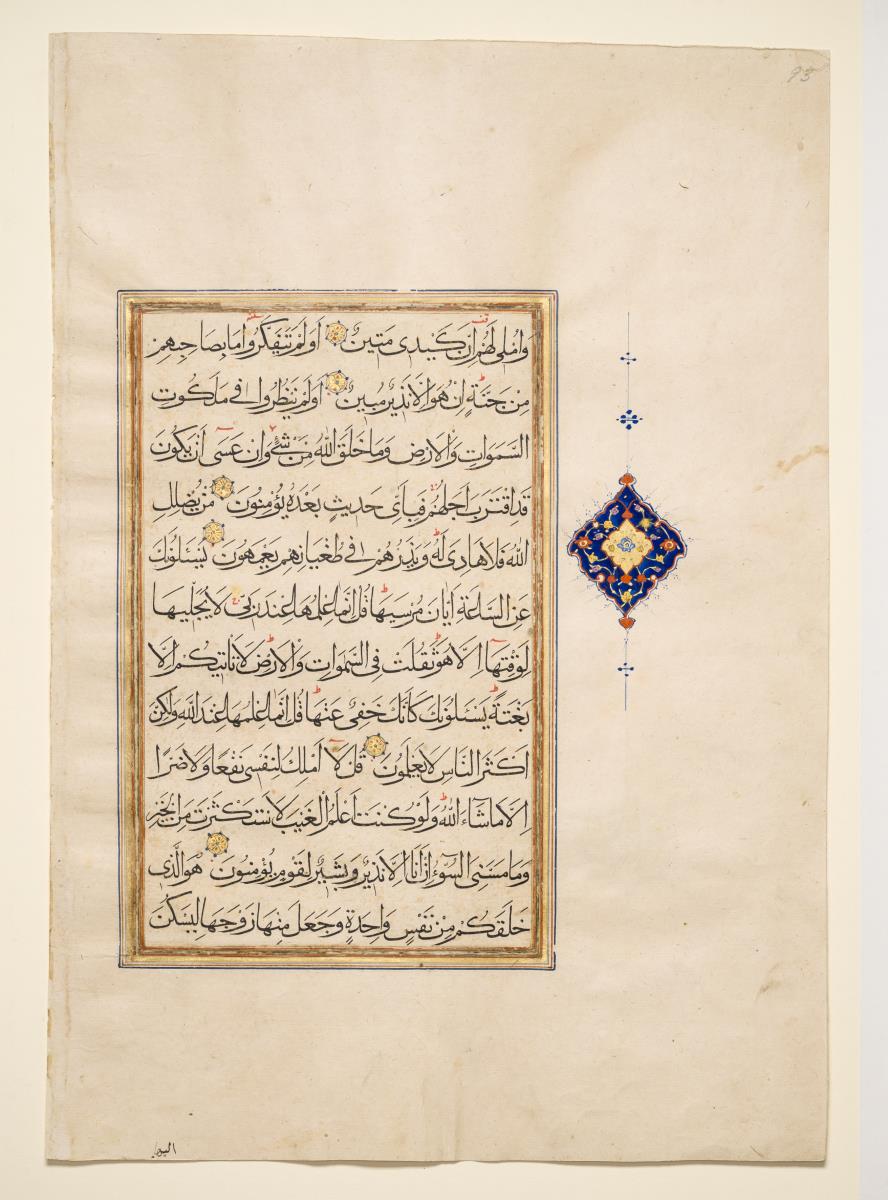 95
وَاُمْلِى لَهُمْ اِنَّ كَيْدِى مَتِينٌ اَوَلَمْ يَتَفَكَّرُوا مَا بِصَاحِبِهِمْ
مِنْ جَنَّةٍ اِنْ هُوَ اِلَّا نَذِيرٌ مُبِينٌ اَوَلَمْ يَنْظُرُوا فِى مَلَكُوتِ
السَّمَوَاتِ وَالْاَرْضِ وَمَا خَلَقَ اللّٰهُ مِنْ شَىْءٍ وَاَنْ عَسَى اَنْ يَكُونَ
قَدِ اقْتَرَبَ اَجَلُهُمْ فَبِاَىِّ حَدِيثٍ بَعْدَهُ يُؤْمِنُونَ مَنْ يُضْلِلِ
اللّٰهُ فَلَا هَادِىَ لَهُ وَيَذَرُهُمْ فِى طُغْيَانِهِمْ يَعْمَهُونَ يَسْئَلُونَكَ
عَنِ السَّاعَةِ اَيَّانَ مُرْسَيهَا قُلْ اِنَّمَا عِلْمُهَا عِنْدَ رَبِّى لَا يُجَلِّيهَا
لِوَقْتِهَا اِلَّا هُوَ ثَقُلَتْ فِى السَّمَوَاتِ وَالْاَرْضِ لَا تَاْتِيكُمْ اِلَّا
بَغْتَةً يَسْئَلُونَكَ كَاَنَّكَ حَفِىٌّ عَنْهَا قُلْ اِنَّمَا عِلْمُهَا عِنْدَ اللّٰهِ وَلٰكِنَّ
اَكْثَرَ النَّاسِ لَا يَعْلَمُونَ قُلْ لَا اَمْلِكُ لِنَفْسِى نَفْعًا وَلَا ضَرًّا
اِلَّا مَا شَاءَ اللّٰهُ وَلَوْ كُنْتُ اَعْلَمُ الْغَيْبَ لَاسْتَكْثَرْتُ مِنَ الْخَيْرِ
وَمَا مَسَّنِىَ السُّوءُ اِنْ اَنَا اِلَّا نَذِيرٌ وَبَشِيرٌ لِقَوْمٍ يُؤْمِنُونَ هُوَ الَّذِى
خَلَقَكُمْ مِنْ نَفْسٍ وَاحِدَةٍ وَجَعَلَ مِنْهَا زَوْجَهَا لِيَسْكُنَ
اليها